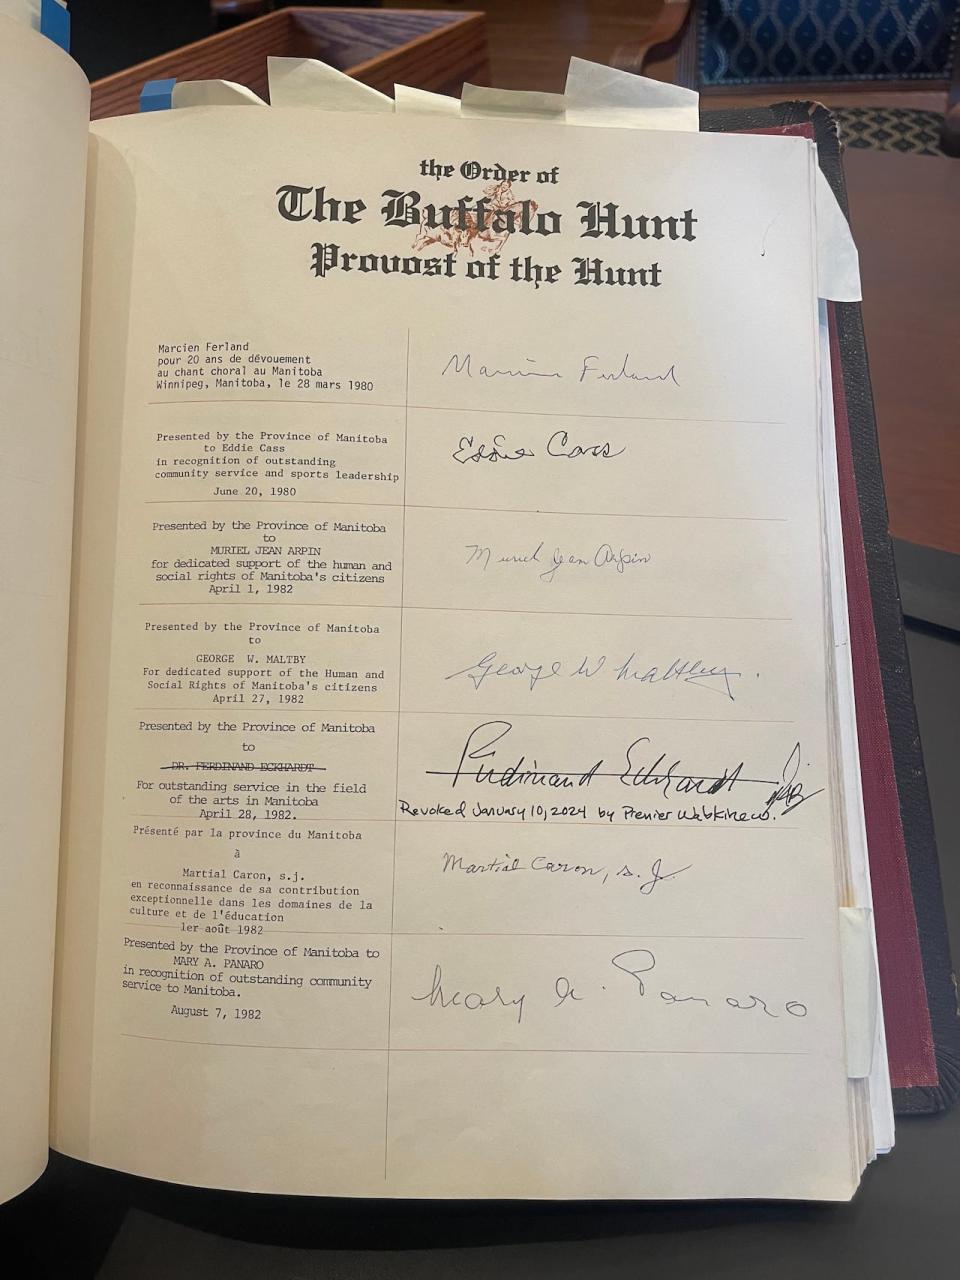 the Order of
The Buffalo Hunt
Provost of the Hunt
Marcien Ferland
pour 20 ans de dévouement
au chant choral au Manitoba
Winnipeg, Manitoba, le 28 mars 1980
Marcien Ferland
Presented by the Province of Manitoba
to Eddie Cass
in recognition of outstanding
community service and sports leadership
June 20, 1980
Eddie Cass
Presented by the Province of Manitoba
to
MURIEL JEAN ARPIN
for dedicated support of the human and
social rights of Manitoba's citizens
April 1, 1982
Muriel Jean Arpin
Presented by the Province of Manitoba
to
GEORGE W. MALTBY
For dedicated support of the Human and
Social Rights of Manitoba's citizens
April 27, 1982
George W Maltby.
Presented by the Province of Manitoba
to
DR. FERDINAND ECKHARDT
For outstanding service in the field
of the arts in Manitoba
April 28, 1982.
Ferdinand Eckhardt
Revoked January 10, 2024 by Premier Wab Kinew.
Présenté par la province du Manitoba
à
Martial Caron, s.j.
en reconnaissance de sa contribution
exceptionnelle dans les domaines de la
culture et de l'éducation
1er août 1982
Martial Caron, s.j.
Presented by the Province of Manitoba to
MARY A. PANARO
in recognition of outstanding community
service to Manitoba.
August 7, 1982
Mary A. Panaro